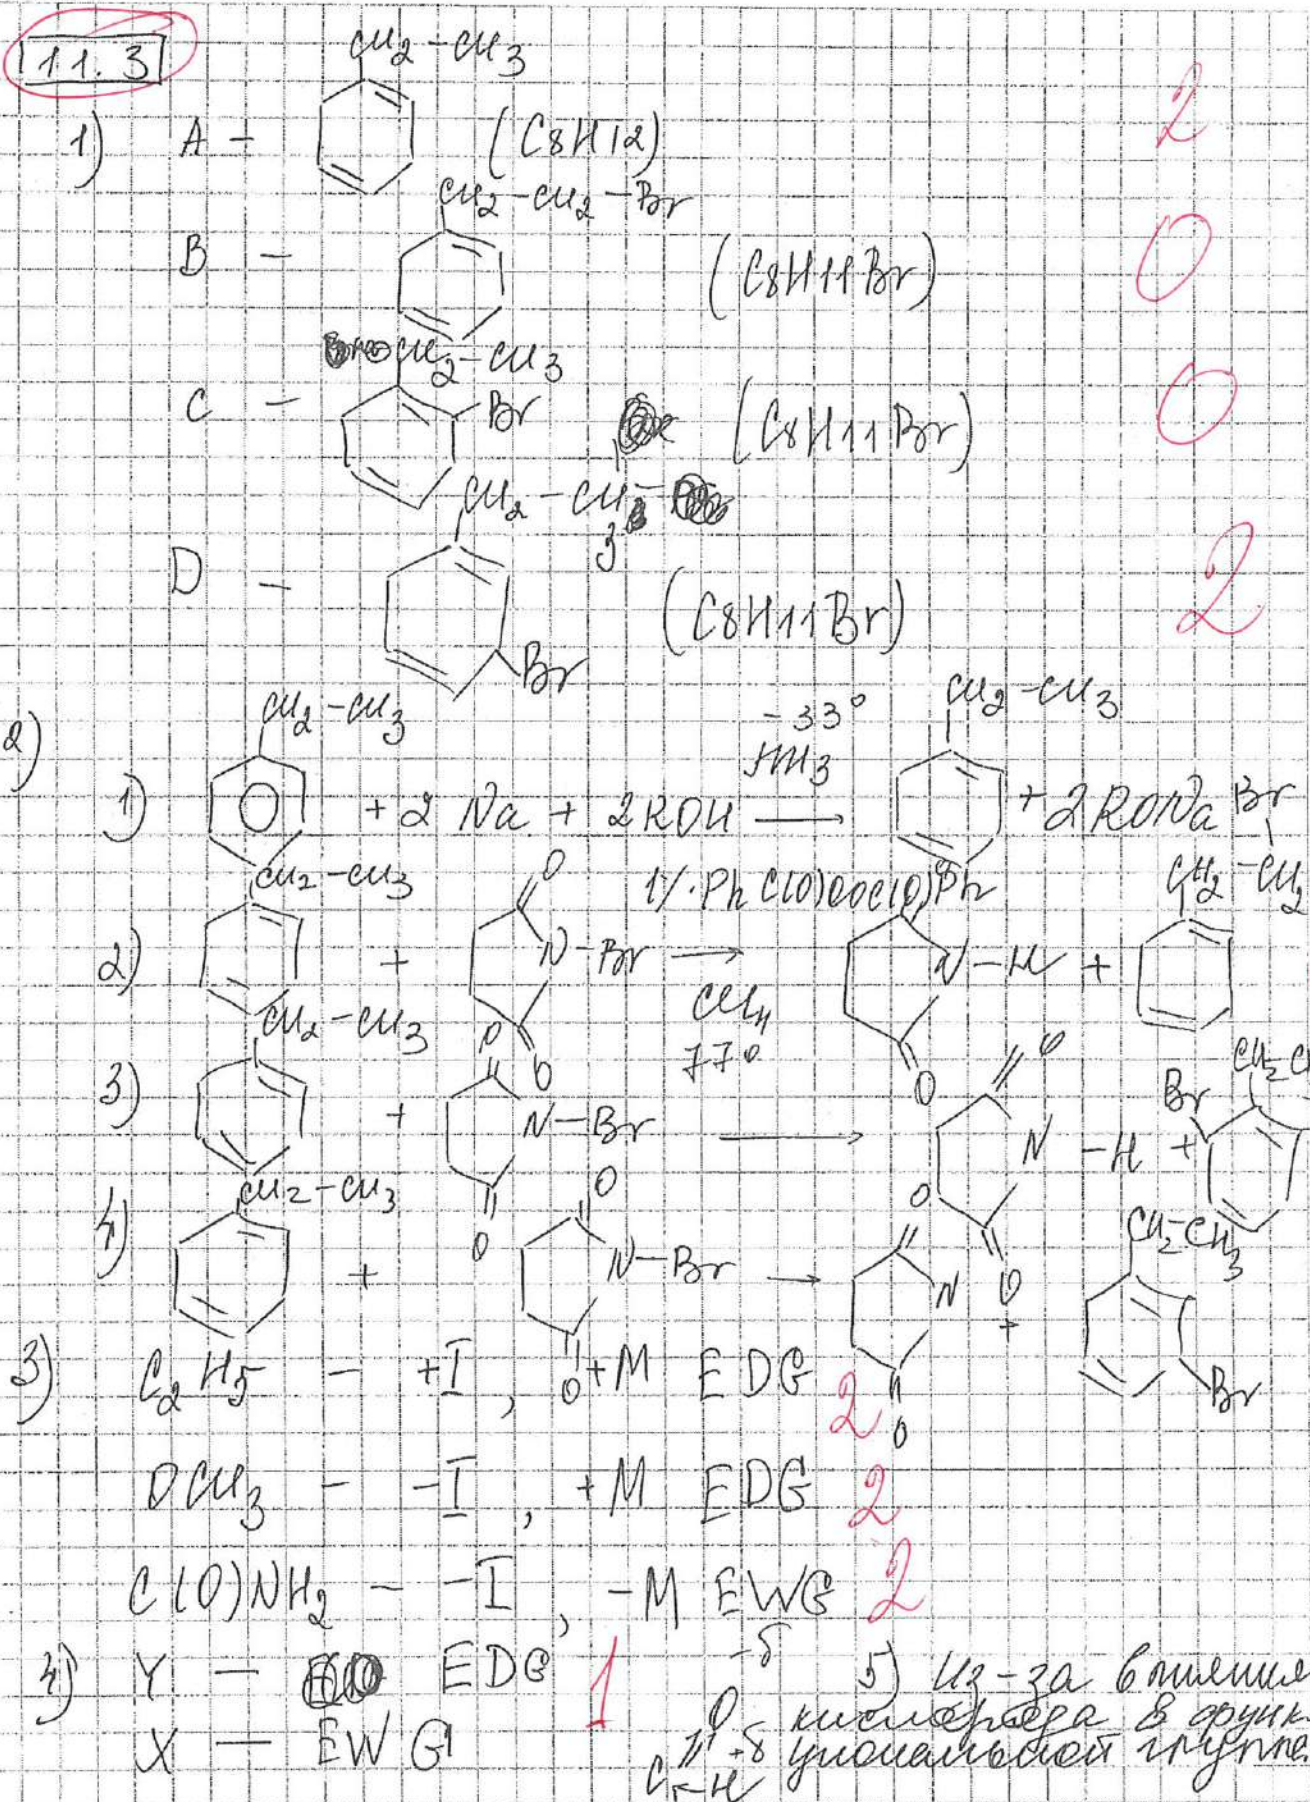 11.3
CH2-CH3
1) A - (C8H12) 2
CH2-CH2-Br
B - (C8H11Br) 0
CH2-CH3
C - Br (C8H11Br) 0
CH2-CH3
D - (C8H11Br) 2
Br
2)
1) CH2-CH3 + 2 Na + 2ROH -33° NH3 → CH2-CH3 + 2RONa
2) CH2-CH3 + O N-Br O 1%·PhC(O)OOC(O)Ph → CCl4 77° O N-H O + CH2-CH2 Br
3) CH2-CH3 + O N-Br O → O N-H O + Br
4) CH2-CH3 + O N-Br O → O N O + CH2-CH3 Br
3) C2H5 - +I, +M EDG 2
OCH3 - -I, +M EDG 2
C(O)NH2 - -I, -M EWG 2
4) Y - EDG 1
X - EWG
-δ O +δ C H
5) Из-за влияния
кислорода в функ-
циональной группе